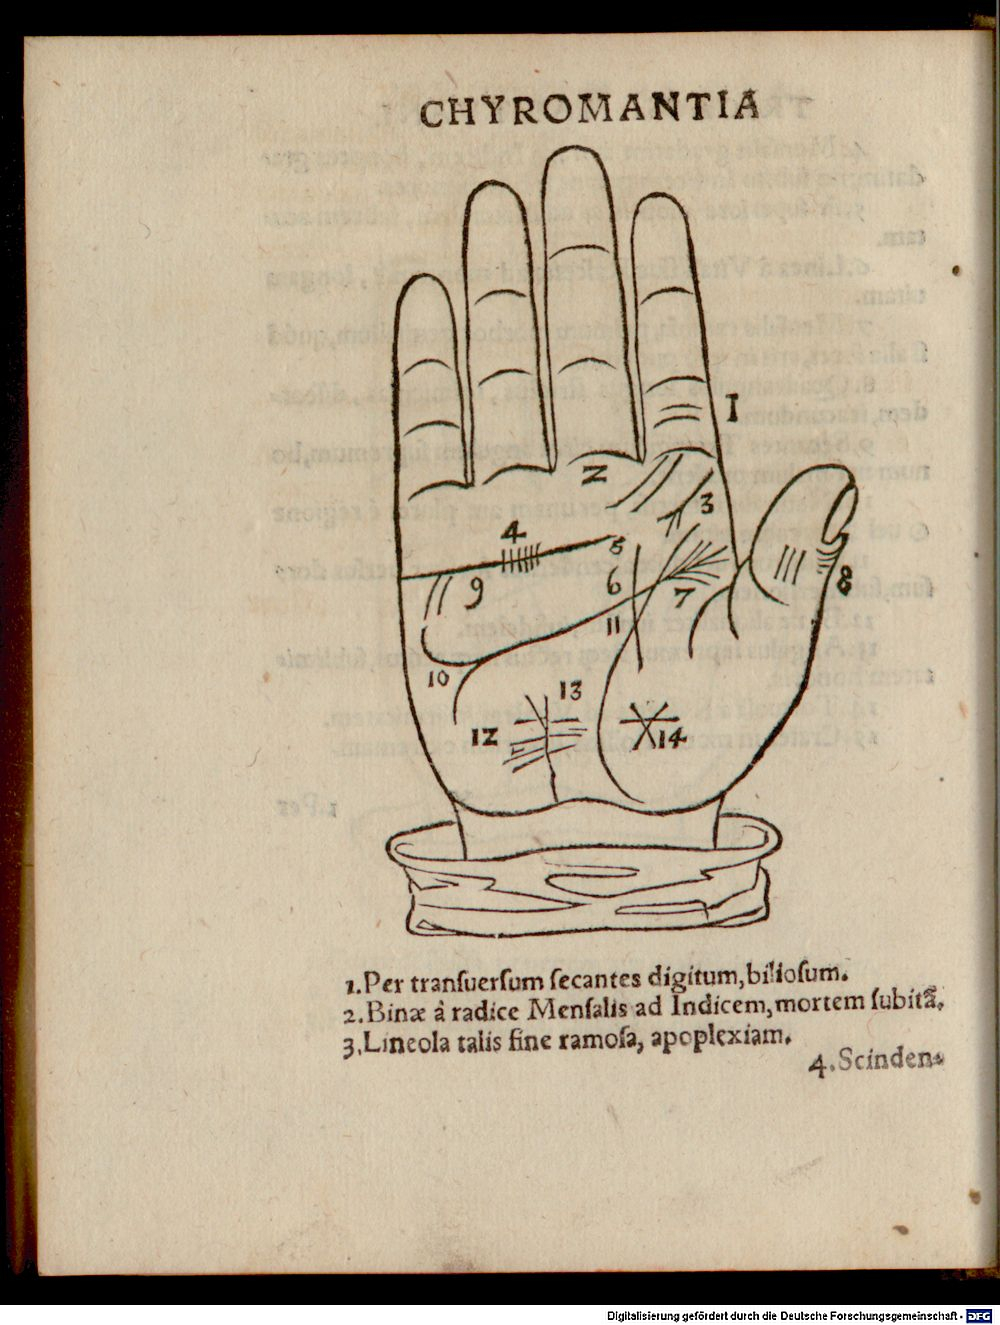 CHYROMANTIA
1
2
3
4
5
6
9
7
8
11
10
13
12
14
1.Per tranſuerſum ſecantes digitum,bilioſum.
2.Binæ à radice Menſalis ad Indicem,mortem ſubitã.
3.Lineola talis fine ramoſa, apoplexiam.
4.Scinden-
Digitalisierung gefördert durch die Deutsche Forschungsgemeinschaft - DFG